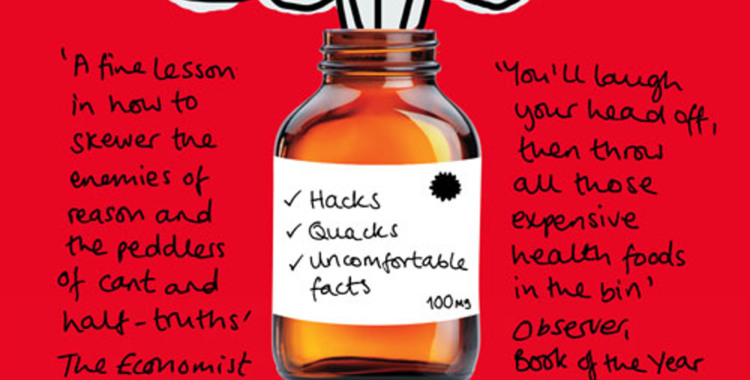 'A fine lesson
in how to
skewer the
enemies of
reason and
the peddlers
of cant and
half-truths'
The Economist
✓ Hacks
✓ Quacks
✓ Uncomfortable
facts
100mg
"You'll laugh
your head off,
then throw
all those
expensive
health foods
in the bin'
Observer,
Book of the Year